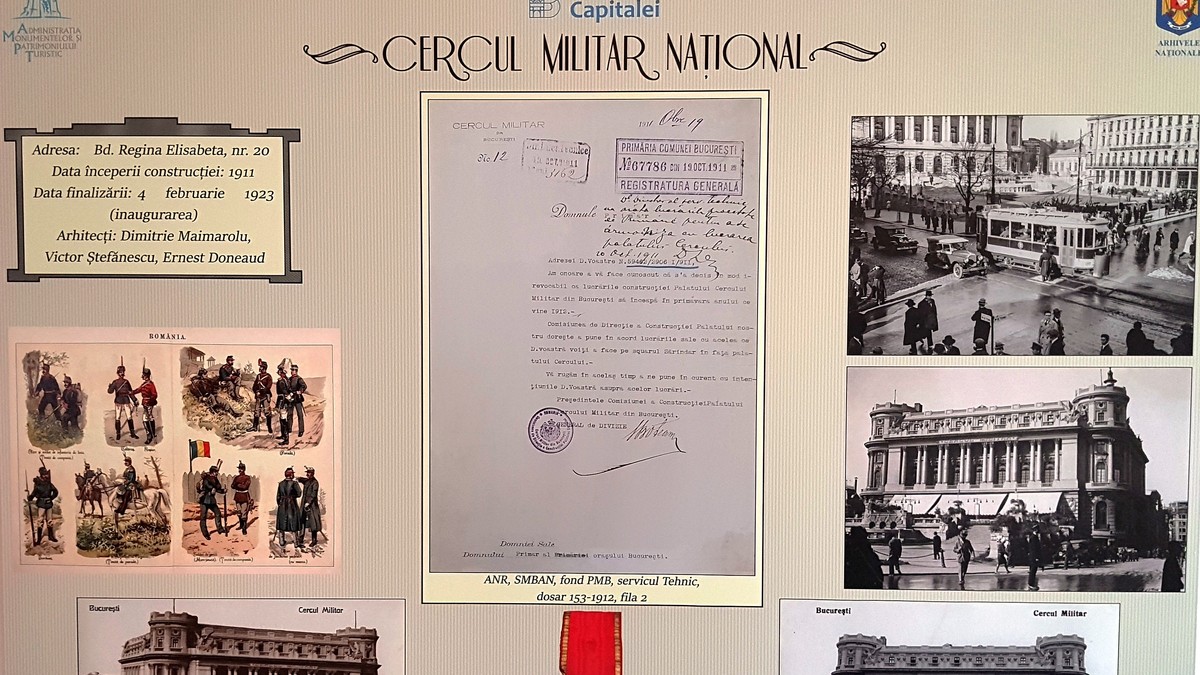 ADMINISTRAȚIA
MONUMENTELOR ȘI
PATRIMONIULUI
TURISTIC
Capitalei
ARHIVELE
NAȚIONALE
CERCUL MILITAR NAȚIONAL
Adresa: Bd. Regina Elisabeta, nr. 20
Data începerii construcției: 1911
Data finalizării: 4 februarie 1923
(inaugurarea)
Arhitecți: Dimitrie Maimarolu,
Victor Ștefănescu, Ernest Doneaud
ROMÂNIA.
CERCUL MILITAR
DIN
BUCUREȘTI
No 12
1911 Obre 19
PRIMĂRIA COMUNEI BUCUREȘTI
No 67786 DIN 19 OCT. 1911
REGISTRATURA GENERALĂ
Domnule
Adresei D.Voastre N.59402/2906 I/911.
Am onoare a vă face cunoscut că s'a decis în mod i-
revocabil ca lucrările construcției Palatului Cercului
Militar din București să înceapă în primăvara anului ce
vine 1912.-
Comisiunea de Direcție a Construcției Palatului nos-
tru dorește a pune în acord lucrările sale cu acelea ce
D.voastră voiți a face pe squarul Sărindar în fața pala-
tului Cercului.-
Vă rugăm în acelaș timp a ne pune în curent cu inten-
țiunile D.Voastră asupra acelor lucrări.-
Președintele Comisiunei a Construcției Palatului
Cercului Militar din București.
GENERAL de DIVIZIE
Domniei Sale
Domnului Primar al Primăriei orașului București.
ANR, SMBAN, fond PMB, servicul Tehnic,
dosar 153-1912, fila 2
București Cercul Militar
București Cercul Militar